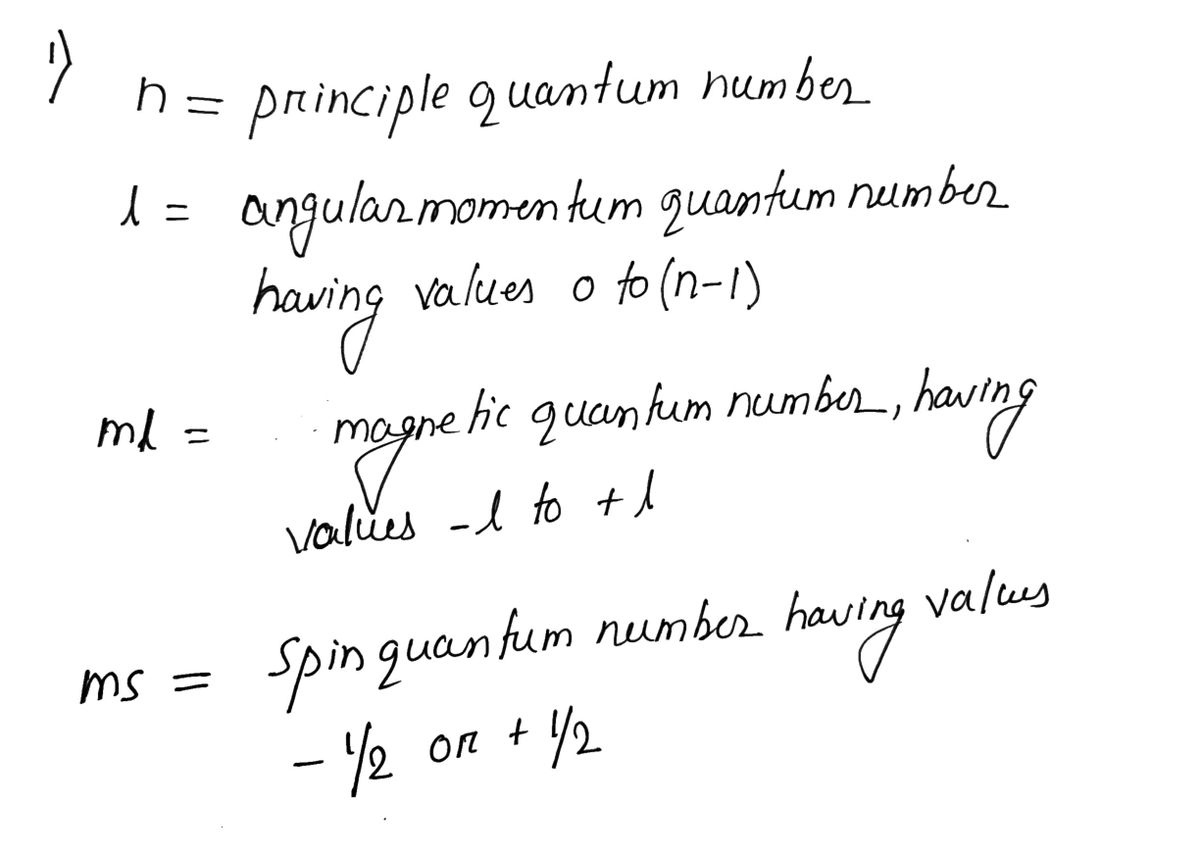 1)
n = principle quantum number
l = angular momentum quantum number
having values 0 to (n-1)
ml = magnetic quantum number, having
values -l to +l
ms = spin quantum number having values
- 1/2 or + 1/2